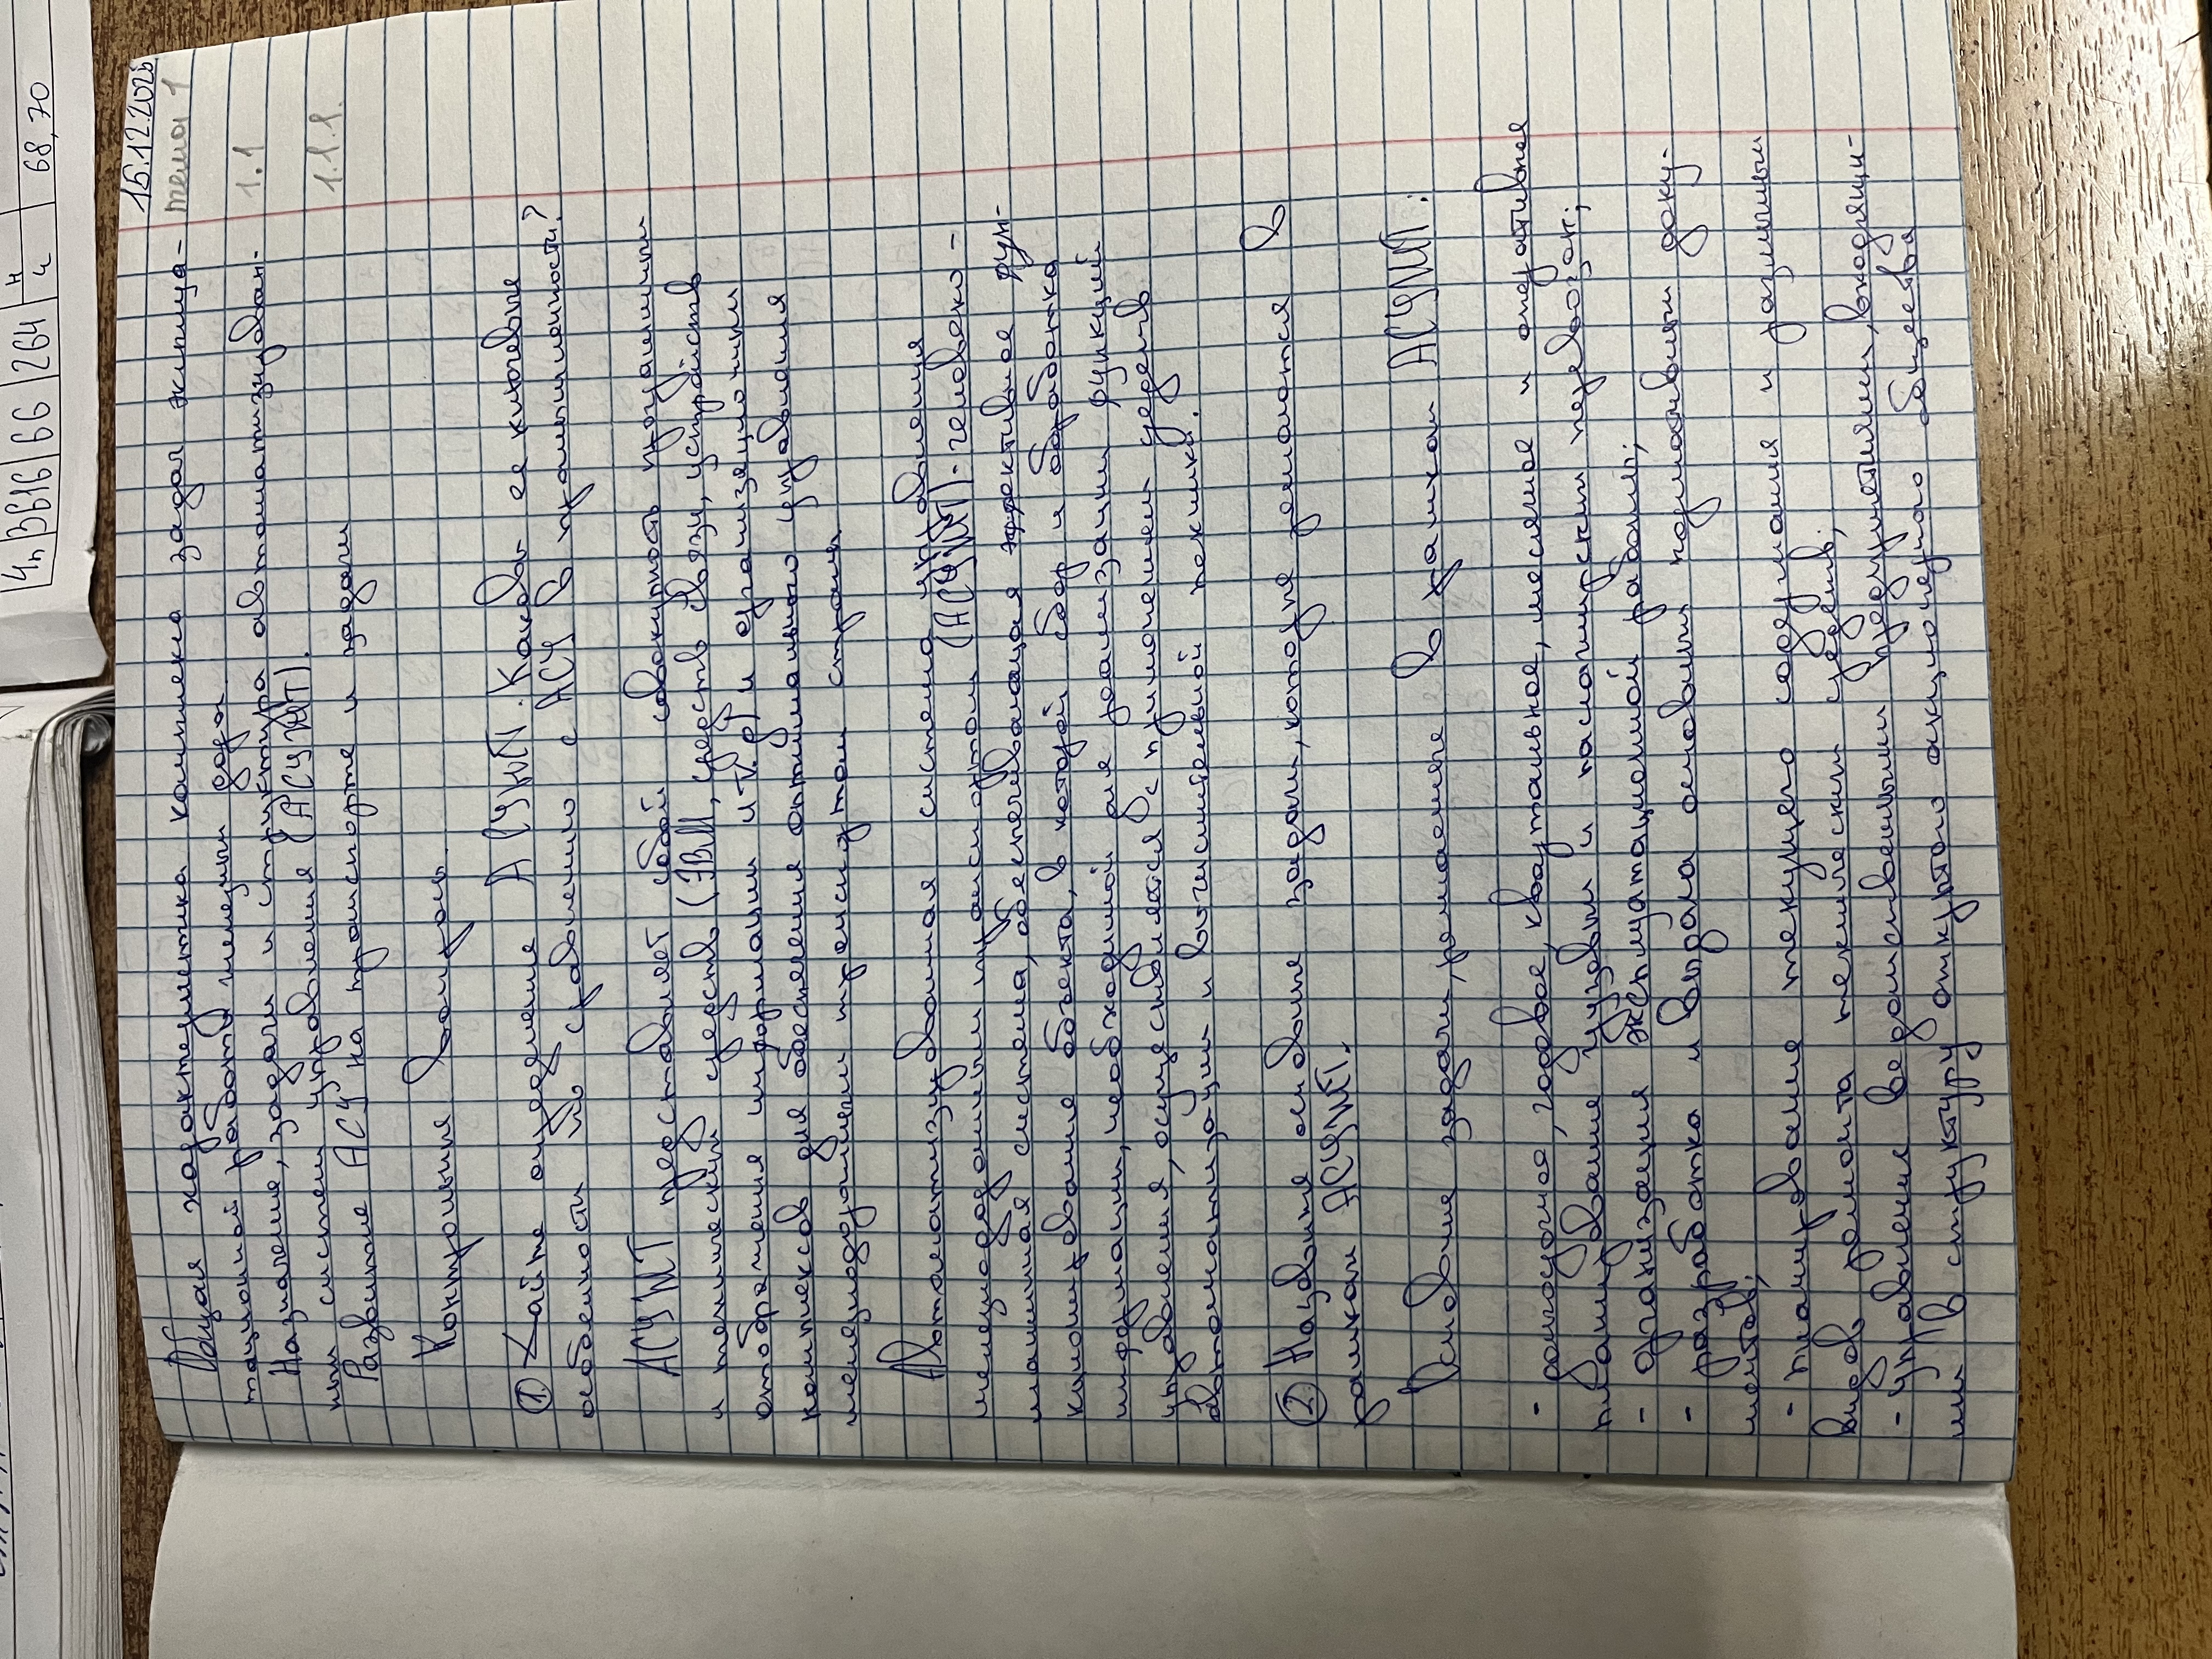 15.12.2025
тема 1
Общая характеристика комплекса задач эксплуа-
тационной работы железных дорог.
1.1
Назначение, задачи и структура автоматизирован-
ных систем управления (АСУЖТ).
1.1.1.
Развитие АСУ на транспорте и задачи
Контрольные вопросы.
1. Дайте определение АСУЖТ. Каковы ее ключевые
особенности по сравнению с АСУ в промышленности?
АСУЖТ представляет собой совокупность программных
и технических средств (ЭВМ, средств связи, устройств
отображения информации и т.д.) и организационных
комплексов для обеспечения оптимального управления
железнодорожным транспортом страны.
Автоматизированная система управления
железнодорожным транспортом (АСУЖТ)-человеко-
машинная система, обеспечивающая эффективное фун-
кционирование объекта, в которой сбор и обработка
информации, необходимой для реализации функций
управления, осуществляется с применением средств
автоматизации и вычислительной техники.
2. Назовите основные задачи, которые решаются в
рамках АСУЖТ.
Основные задачи, решаемые в рамках АСУЖТ:
- долгосрочное, годовое, квартальное, месячное и оперативное
планирование грузовых и пассажирских перевозок;
- организация эксплуатационной работы;
- разработка и выдача основных нормативных доку-
ментов;
- планирование текущего содержания и различных
видов ремонта технических средств;
- управление ведомственными предприятиями, входящи-
ми в структуру открытого акционерного общества
4п
3В16
66
264
н
ч
68,70